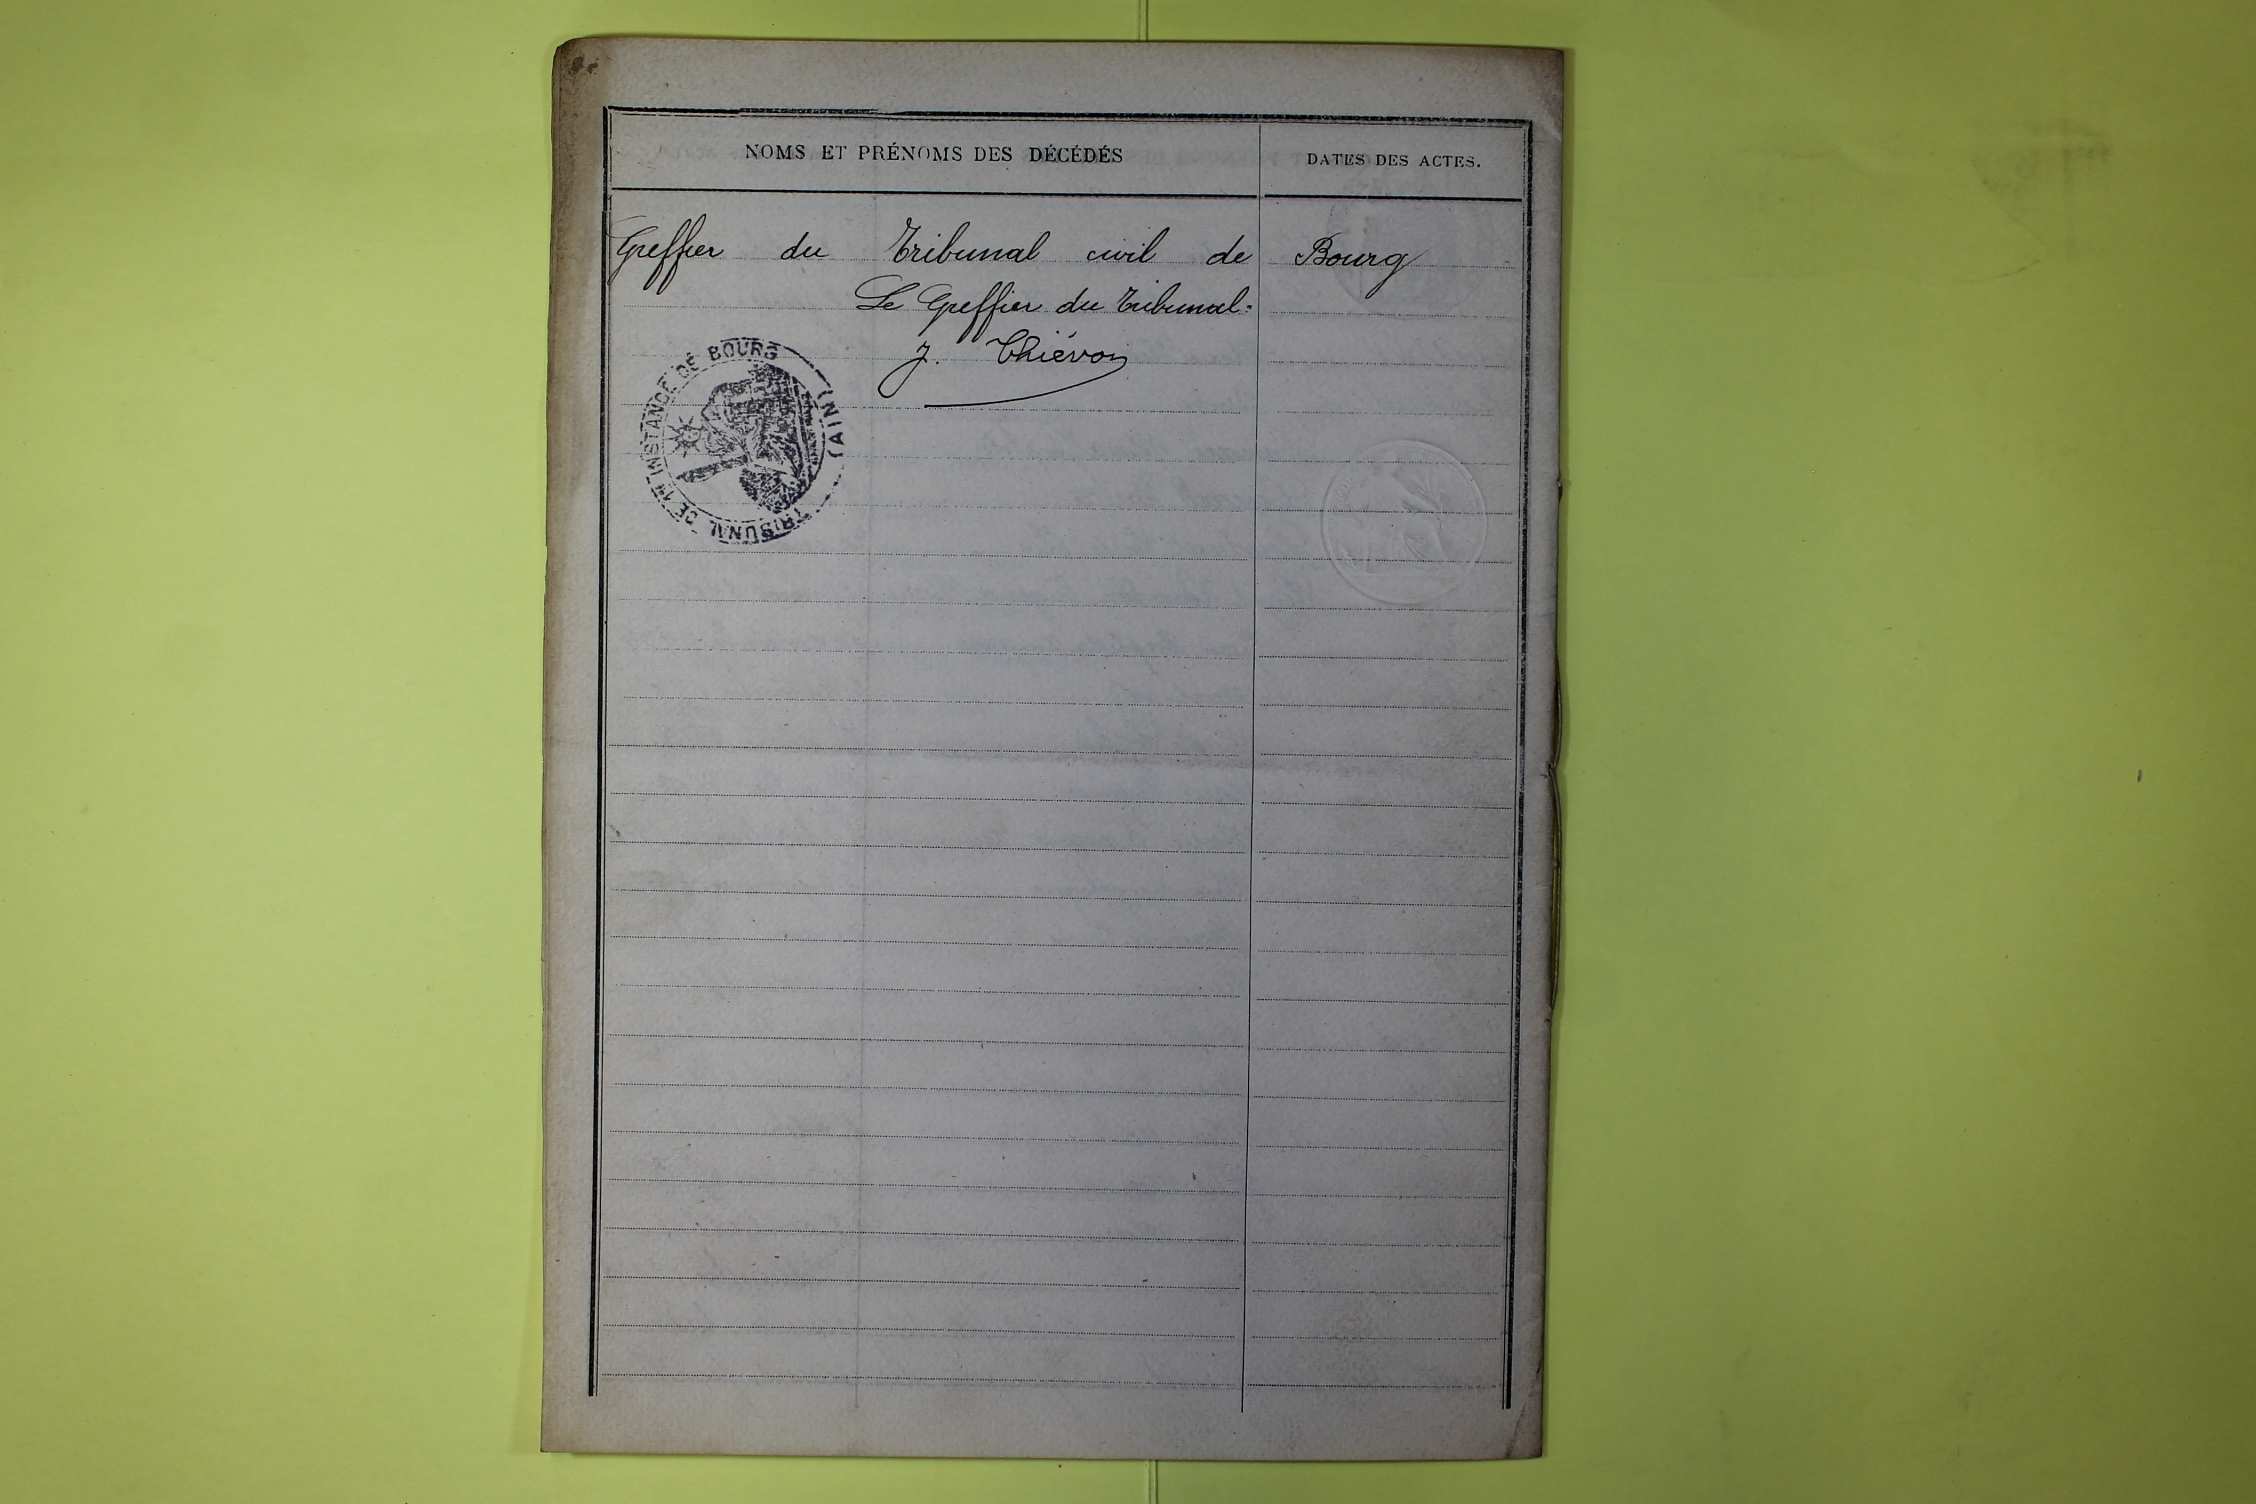 NOMS ET PRÉNOMS DES DÉCÉDÉS
DATES DES ACTES.
Greffier du Tribunal civil de Bourg
Le Greffier du Tribunal:
J. Thiévon
TRIBUNAL DE 1re INSTANCE DE BOURG
(AIN)